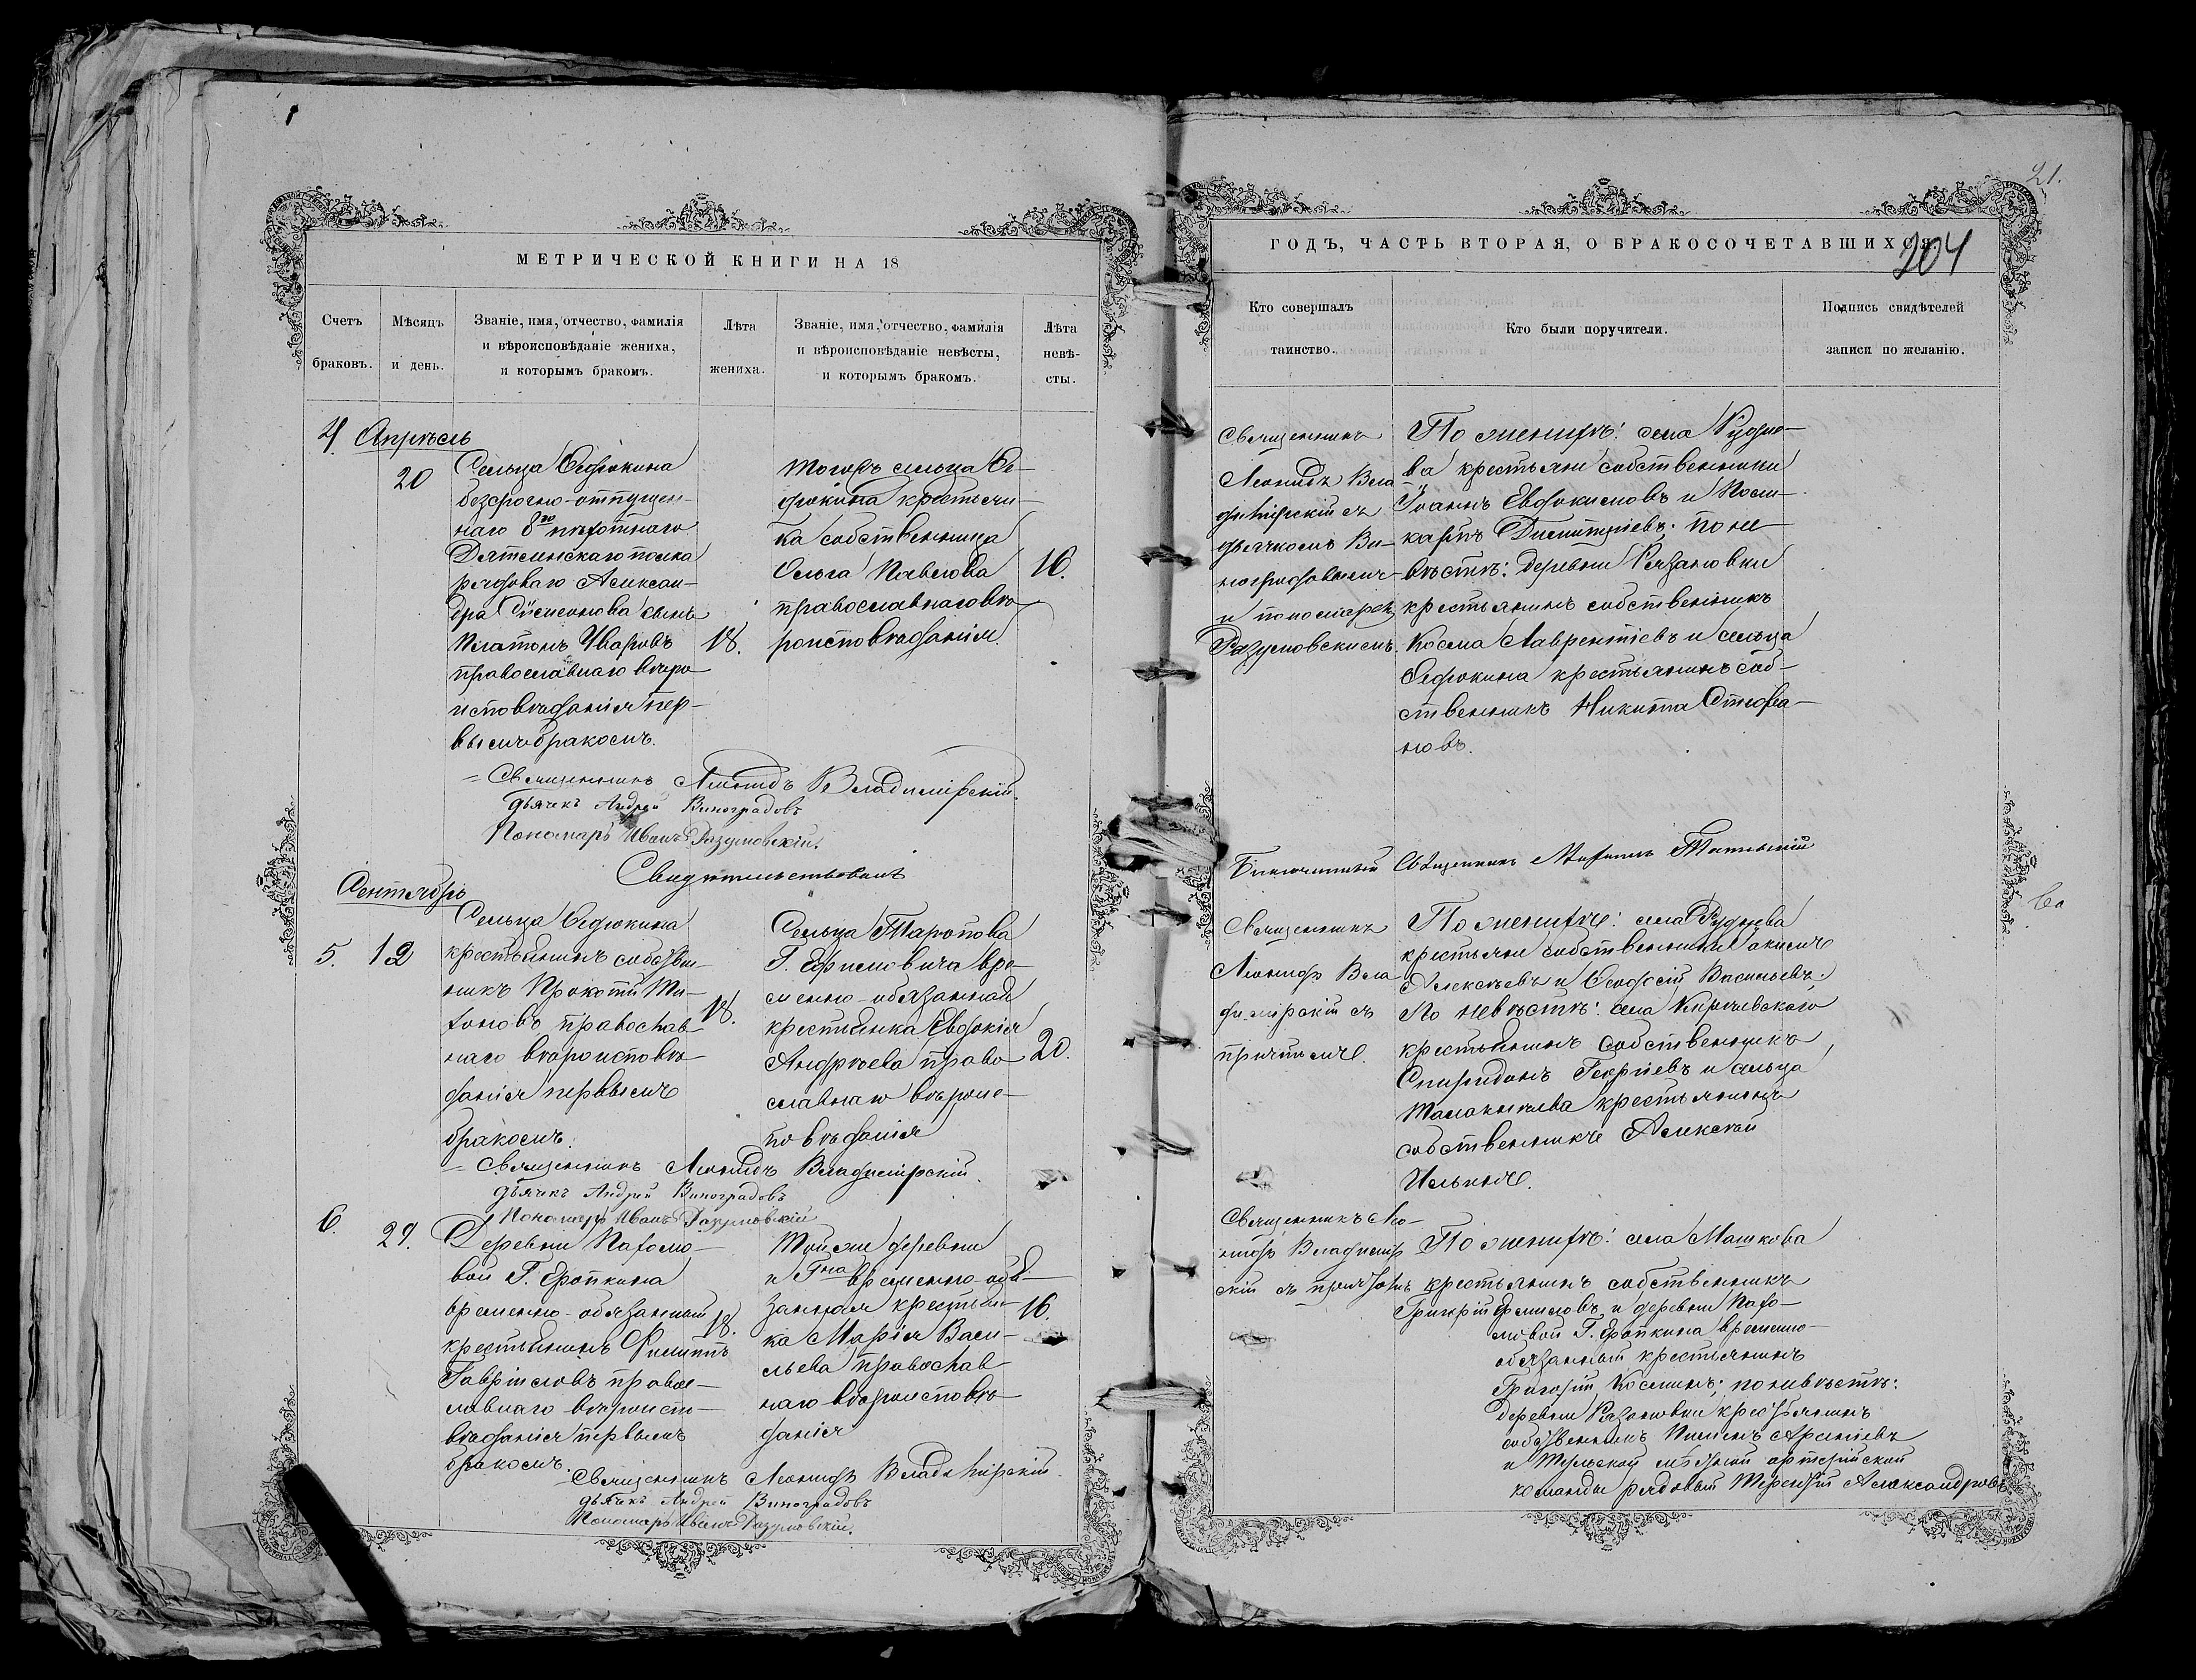 21.
204
МЕТРИЧЕСКОЙ КНИГИ НА 18
Счетъ браковъ.
Мѣсяцъ и день.
Званіе, имя, отчество, фамилія
и вѣроисповѣданіе жениха,
и которымъ бракомъ.
Лѣта
жениха.
Званіе, имя, отчество, фамилія
и вѣроисповѣданіе невѣсты,
и которымъ бракомъ.
Лѣта
невѣ-
сты.
4 Апрѣль
20
Сельца Федюкина
безсрочно-отпущен-
наго 8го пѣхотнаго
полка
рядоваго Алексан-
дра сынъ
Платонъ Уваровъ
православнаго вѣро
исповѣданія пер-
вымъ бракомъ.
18.
тогожъ сельца Фе-
дюкина крестьян-
ка собственница
Ольга Павлова
православнаго вѣ
роисповѣданія
16.
Священникъ Леонидъ Владимірскій.
дьячекъ Андрей Виноградовъ
Пономарь Иванъ Разумовскій.
Свидѣтельствовалъ
Сентябрь
5. 12
Сельца Федюкина
крестьянинъ собствен-
никъ Прокопій Ти-
хоновъ православ-
наго вѣроисповѣ-
данія первымъ
бракомъ.
18.
Сельца Таропова
Г. Ефимовича вре-
менно-обязанная
крестьянка Евдокія
Андреева право
славнаго вѣроис-
повѣданія
20.
Священникъ Леонидъ Владимірскій.
дьячекъ Андрей Виноградовъ
Пономарь Иванъ Разумовскій
6. 29.
Деревни Пахомо-
вой Г. Еропкина
временно-обязанный
крестьянинъ Филиппъ
Гавриловъ правос-
лавнаго вѣроиспо-
вѣданія первымъ
бракомъ.
18.
Той же деревни
и Гна временно-обя-
занная крестьян-
ка Марія Васи-
льева православ
наго вѣроисповѣ-
данія
16.
Священникъ Леонидъ Владимірскій.
дьячекъ Андрей Виноградовъ
Пономарь Иванъ Разумовскій.
ГОДЪ, ЧАСТЬ ВТОРАЯ, О БРАКОСОЧЕТАВШИХСЯ.
Кто совершалъ
таинство.
Кто были поручители.
Подпись свидѣтелей
записи по желанію.
Священникъ
Леонидъ Вла-
димірскій съ
дьячкомъ Ви-
ноградовымъ
и пономаремъ
Разумовскимъ.
По женихѣ: села Рудне-
ва крестьяне собственники
Іоаннъ Евдокимовъ и Поли-
карпъ Димитріевъ; по не-
вѣстѣ: деревни Рязановки
крестьянинъ собственникъ
Косма Лаврентіевъ и сельца
Федюкина крестьянинъ соб-
ственникъ Никита Стефа-
новъ.
Благочинный Священникъ
Священникъ
Леонидъ Вла
димірскій съ
причтомъ.
По женихѣ: села Руднева
крестьяне собственники Іакимъ
Алексѣевъ и Феодосій Васильевъ;
По невѣстѣ: села
крестьянинъ собственникъ
Спиридонъ и сельца
крестьянинъ
собственникъ Алексѣй
Ильинъ.
Священникъ Лео-
нидъ Владимір
скій съ причтомъ
По женихѣ: села Машкова
крестьянинъ собственникъ
Григорій и деревни Пахо-
мовой Г. Еропкина временно-
обязанный крестьянинъ
Григорій Косминъ; по невѣстѣ:
деревни Рязановки крестьянинъ
собственникъ Пименъ Арсеніевъ
и Тульской
команды рядовый Терентій Александровъ